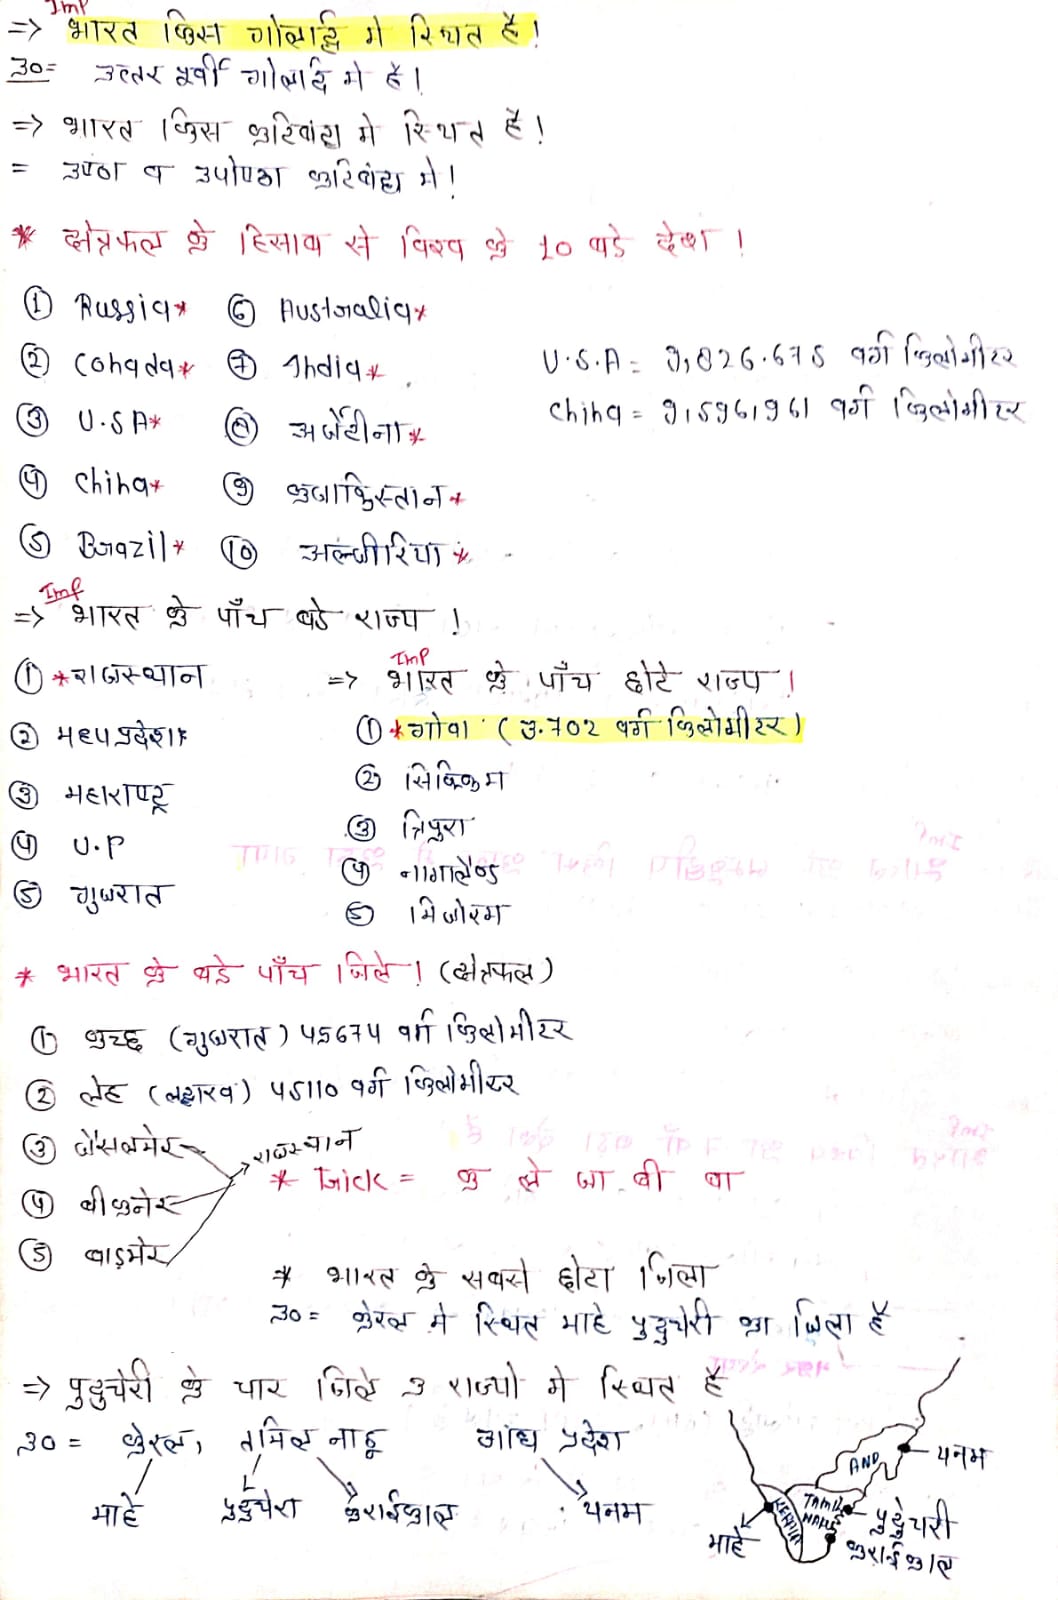 Imp
=> भारत किस गोलार्द्ध मे स्थित है!
उ०= उत्तर पूर्वी गोलार्द्ध मे है।
=> भारत किस कटिबंध मे स्थित है!
= उष्ण व उपोष्ण कटिबंध मे!
* क्षेत्रफल के हिसाब से विश्व के 10 बडे देश !
① Russia* ⑥ Australia*
② Canada* ⑦ India*
U.S.A = 9,826.675 वर्ग किलोमीटर
③ U.S.A* ⑧ अर्जेटीना*
China = 9,596,961 वर्ग किलोमीटर
④ China* ⑨ कजाकिस्तान*
⑤ Brazil* ⑩ अल्जीरिया*
Imp
=> भारत के पाँच बडे राज्य !
① *राजस्थान
② मध्यप्रदेश
③ महाराष्ट्र
④ U.P
⑤ गुजरात
Imp
=> भारत के पाँच छोटे राज्य !
① *गोवा (3.702 वर्ग किलोमीटर)
② सिक्किम
③ त्रिपुरा
④ नागालैण्ड
⑤ मिजोरम
* भारत के बडे पाँच जिले ! (क्षेत्रफल)
① कच्छ (गुजरात) 45674 वर्ग किलोमीटर
② लेह (लद्दाख) 45110 वर्ग किलोमीटर
③ जैसलमेर
④ बीकानेर
⑤ बाड़मेर
राजस्थान
* Trick = क ले जा बी बा
* भारत के सबसे छोटा जिला
उ०= केरल मे स्थित माहे पुडुचेरी का जिला है
=> पुडुचेरी के चार जिले 3 राज्यो मे स्थित है
उ०= केरल, तमिल नाडू आंध्र प्रदेश
माहे पुडुचेरी कराईकाल यनम
AND यनम
KERALA TAMIL NADU पुडुचेरी
माहे कराईकाल